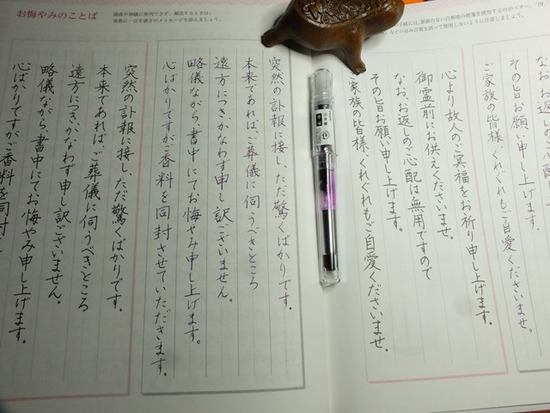 ご家族の皆様、くれぐれもご自愛く
その旨お願い申し上げます。
なお、お返しのご心配は
心より故人のご冥福をお祈り申し上げます。
御霊前にお供えくださいませ。
なお、お返しのご心配は無用ですので
その旨お願い申し上げます。
ご家族の皆様、くれぐれもご自愛くださいませ。
お悔やみのことば
突然の訃報に接し、ただ驚くばかりです。
本来であれば、ご葬儀に伺うべきところ
遠方につき、かなわず申し訳ございません。
略儀ながら、書中にてお悔やみ申し上げます。
心ばかりですがご香料を同封させていただきます。
突然の訃報に接し、ただ驚くばかりです。
本来であれば、ご葬儀に伺うべきところ
遠方につき、かなわず申し訳ございません。
略儀ながら、書中にてお悔やみ申し上げます。
心ばかりですがご香料を同封